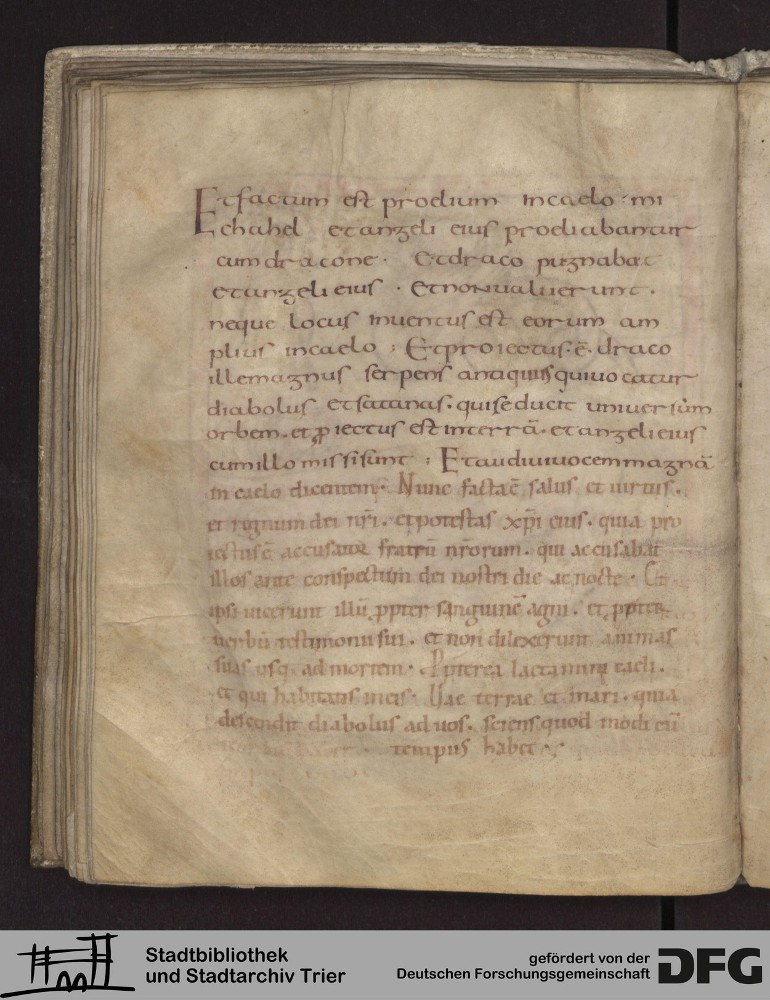 Et factum est proelium in caelo · mi
chahel et angeli eius proeliabantur
cum dracone · Et draco pugnabat
et angeli eius · Et non ualuerunt ·
neque locus inuentus est eorum am
plius in caelo ; Et proiectus · ē · draco
ille magnus serpens antiquus qui uocatur
diabolus et satanas · qui seducit uniuersum
orbem · et ꝓiectus est in terrā · et angeli eius
cum illo missi sunt ; Et audiui uocem magnā
in caelo dicentem · Nunc facta ē salus et uirtus ·
et regnum dei nr̄i · et potestas xp̄i eius · quia pro
iectus ē accusator fratrū nr̄orum · qui accusabat
illos ante conspectum dei nostri die ac nocte · Et
ipsi uicerunt illū ꝓpter sanguinē agni · et ꝓpter
uerbū testimonii sui · et non dilexerunt animas
suas usq· ad mortem · Ꝓpterea laetamini caeli ·
et qui habitatis in eis · Uae terrae et mari · quia
descendit diabolus ad uos · sciens quod modicū
tempus habet ·
Stadtbibliothek
und Stadtarchiv Trier
gefördert von der
Deutschen Forschungsgemeinschaft
DFG